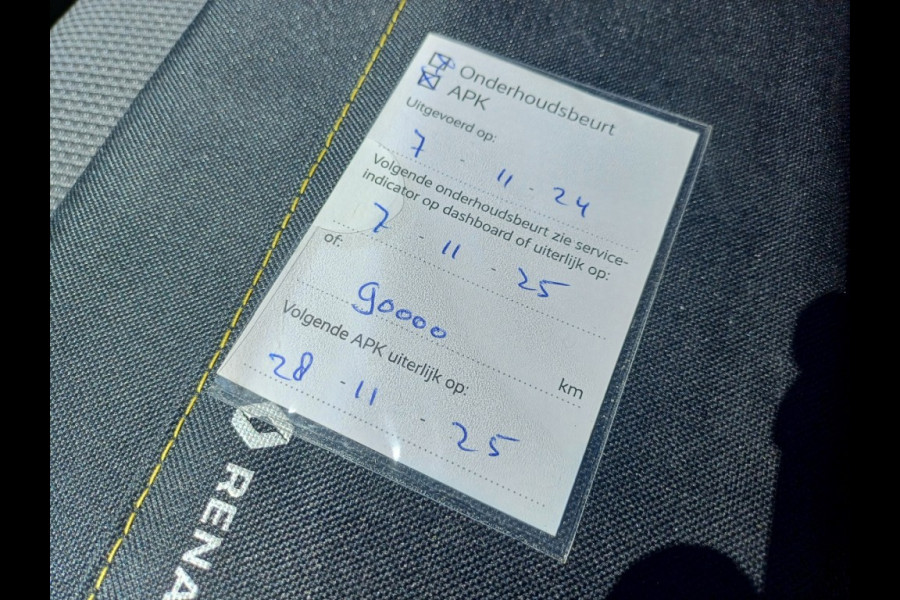 Onderhoudsbeurt
APK
Uitgevoerd op:
7 - 11 - 24
Volgende onderhoudsbeurt zie service-
indicator op dashboard of uiterlijk op:
7 - 11 - 25
of:
90000 km
Volgende APK uiterlijk op:
28 - 11 - 25
RENA